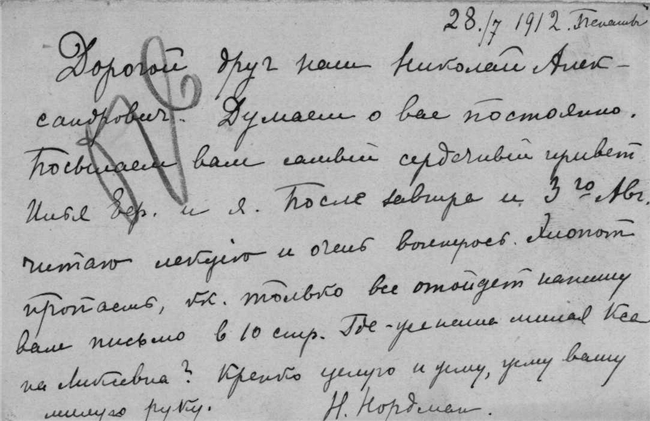 28./7 1912. Пенаты
Дорогой друг наш Николай Алек-
сандрович. Думаем о вас постоянно.
Посылаем вам самый сердечный привет
Илья Еф. и я. После завтра и 3го Авг.
читаю лекцию и очень волнуюсь. Хлопот
пропасть, как только все отойдет напишу
вам письмо в 10 стр. Где-же наша милая
на ? Крепко целую и жму, жму вашу
милую руку. Н. Нордман.